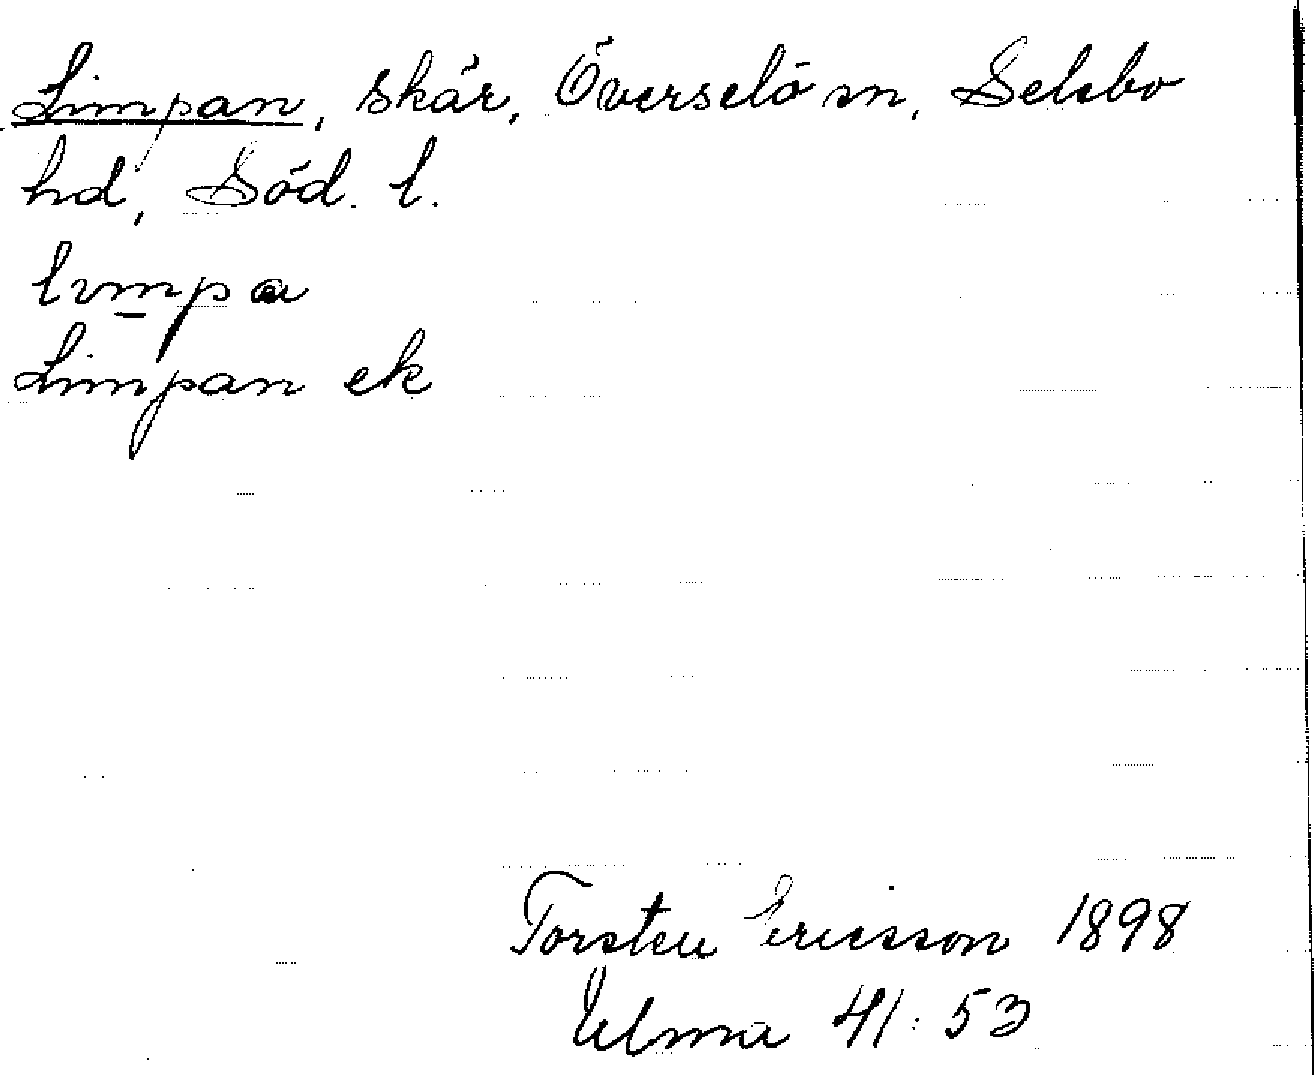 Limpan, skär, Överselö sn, Selebo
hd, Söd. l.
limpa
Limpan ek
Torsten Ericsson 1898
Ulma 41:53